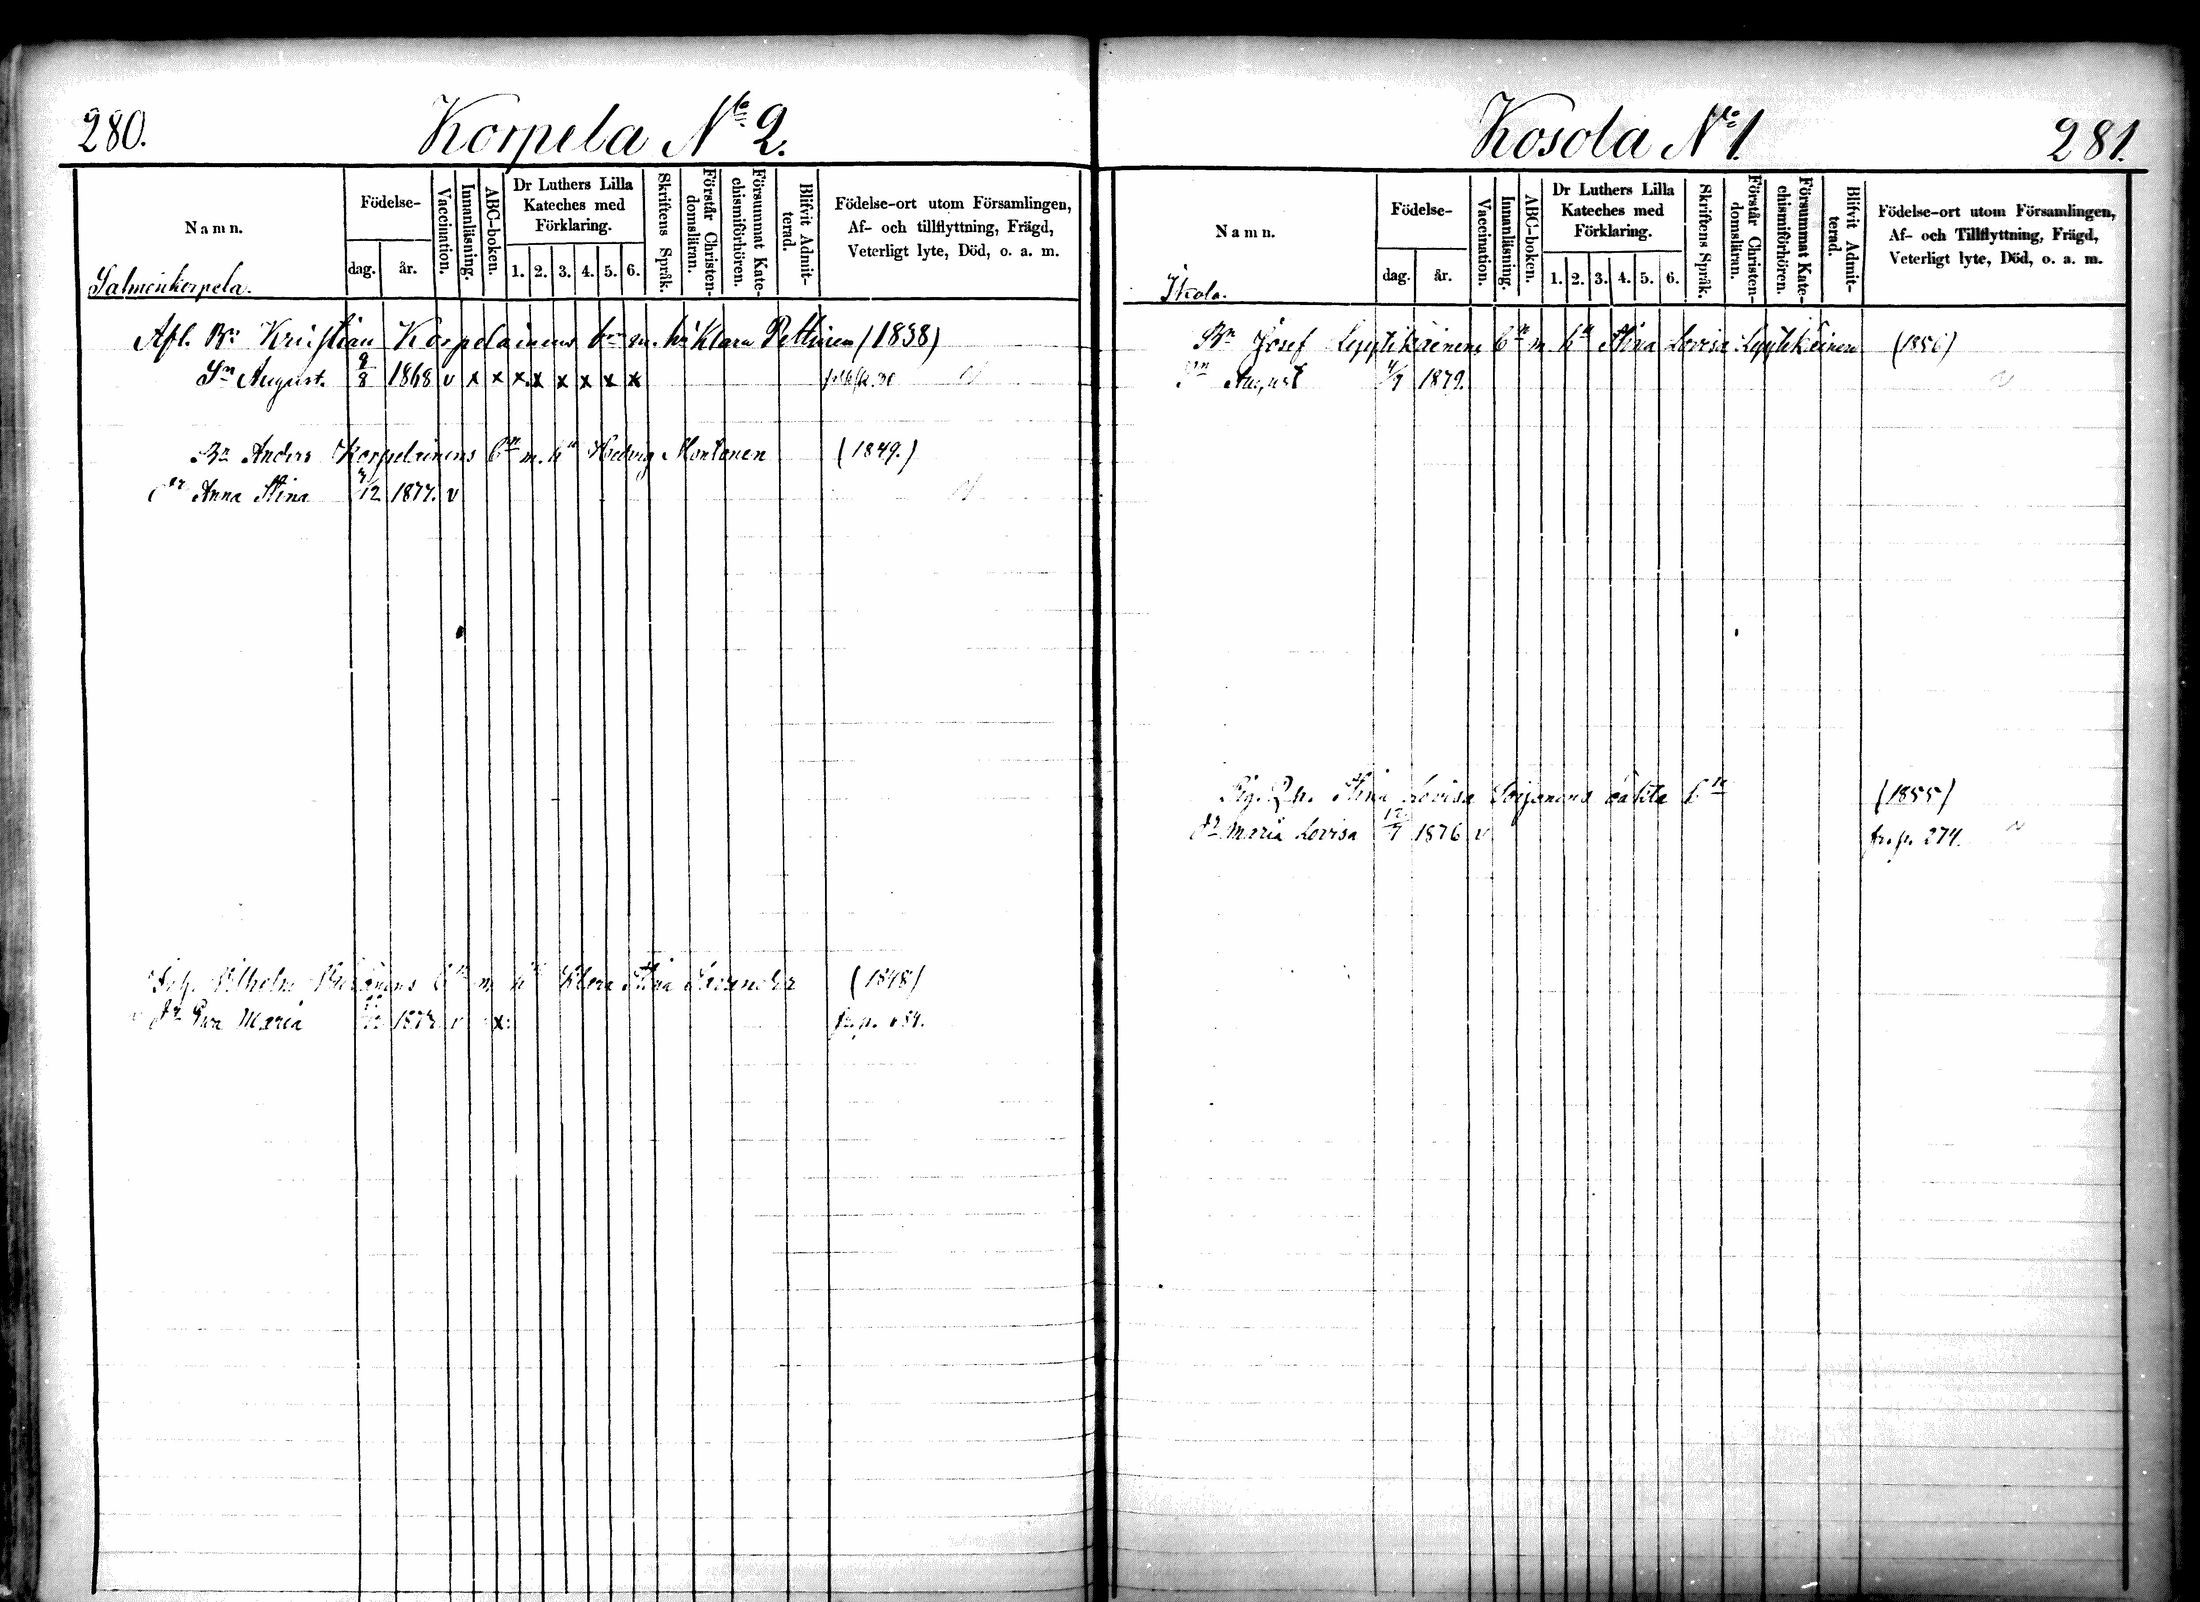 280.
Korpela N:o 2.
Namn.
Födelse-
dag.
år.
Vaccination.
Innanläsning.
ABC-boken.
Dr Luthers Lilla
Kateches med
Förklaring.
1. 2. 3. 4. 5. 6.
Skriftens Språk.
Förstår Christen-
domsläran.
Försummat Kate-
chismiförhören.
Blifvit Admit-
terad.
Födelse-ort utom Församlingen,
Af- och tillflyttning, Frägd,
Veterligt lyte, Död, o. a. m.
Salmenkorpela.
Afl. Bn Kristian Korpelainens bn m. hu Klara Pettinen (1838)
Sn August. 9/8 1868 v x x x x x x x x
Bn Anders Korpelainens bn m. hu Hedvig Montonen (1849.)
dr Anna Stina /12 1877. v
Joh. Vilhelm bn m hu Klara Stina (1848)
dr Eva Maria /12 187 v x
281.
Kosola N:o 1.
Namn.
Födelse-
dag.
år.
Vaccination.
Innanläsning.
ABC-boken.
Dr Luthers Lilla
Kateches med
Förklaring.
1. 2. 3. 4. 5. 6.
Skriftens Språk.
Förstår Christen-
domsläran.
Försummat Kate-
chismiförhören.
Blifvit Admit-
terad.
Födelse-ort utom Församlingen,
Af- och Tillflyttning, Frägd,
Veterligt lyte, Död, o. a. m.
Ikola.
Bn Josef Leppikäinens bn m hu Stina Lovisa Leppikäinen (1856)
Sn August /9 1879.
Pig. Stina Lovisa Sorjonens oäkta bn (1855)
dr Maria Lovisa 12/7 1876 v fr. p. 274.